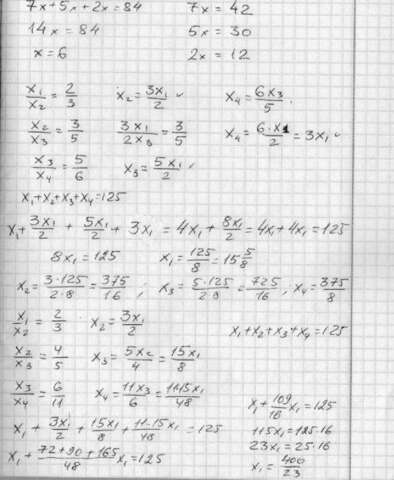 7x+5x+2x=84 7x=42
14x=84 5x=30
x=6 2x=12
x₁/x₂ = 2/3 x₂ = 3x₁/2 x₄ = 6x₃/5
x₂/x₃ = 3/5 3x₁/2x₃ = 3/5 x₄ = 6·x₁/2 = 3x₁
x₃/x₄ = 5/6 x₃ = 5x₁/2
x₁+x₂+x₃+x₄=125
x₁+ 3x₁/2 + 5x₁/2 + 3x₁ = 4x₁+ 8x₁/2 = 4x₁+4x₁=125
8x₁=125 x₁= 125/8 = 15 5/8
x₂= 3·125/2·8 = 375/16 ; x₃= 5·125/2·8 = 725/16 , x₄= 375/8
x₁/x₂ = 2/3 x₂= 3x₁/2 x₁+x₂+x₃+x₄=125
x₂/x₃ = 4/5 x₃= 5x₂/4 = 15x₁/8
x₃/x₄ = 6/11 x₄= 11x₃/6 = 11·15x₁/48
x₁ + 3x₁/2 + 15x₁/8 + 11·15x₁/48 = 125
x₁+ 72+90+165/48 x₁=125
x₁+ 109/16 x₁=125
115x₁=125·16
23x₁=25·16
x₁= 400/23